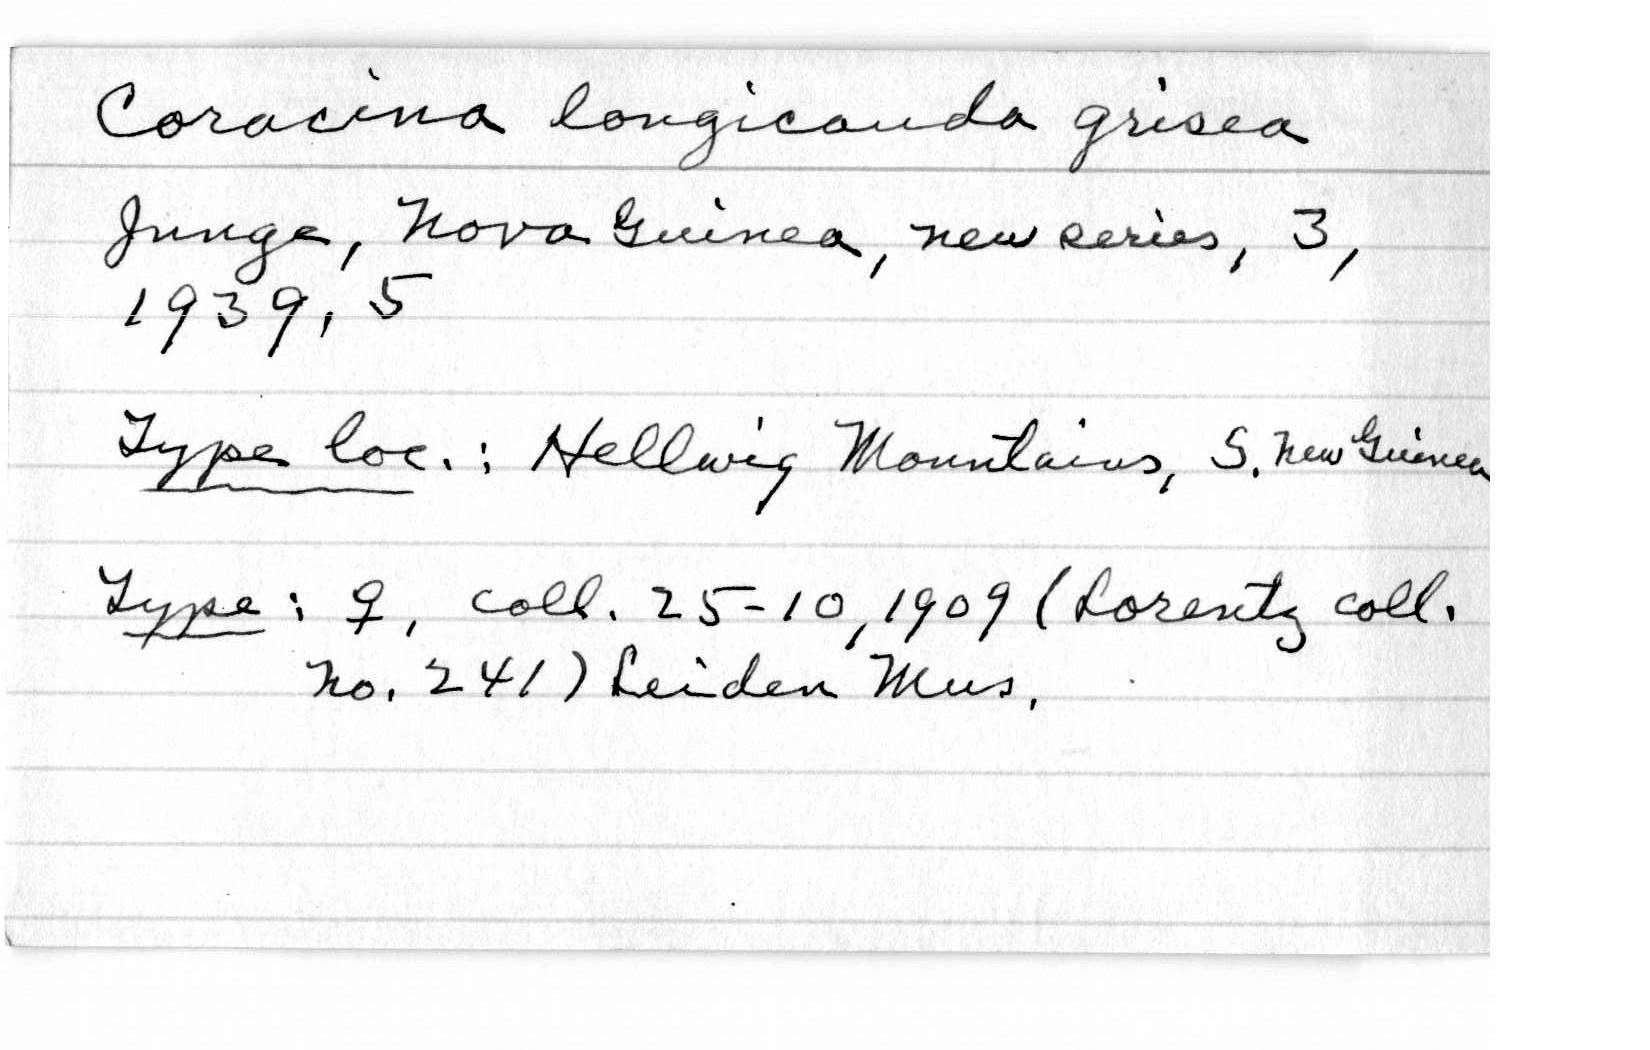 Coracina longicauda grisea
Junge, Nova Guinea, new series, 3,
1939, 5
Type loc.: Hellwig Mountains, S. New Guinea
Type: ♀, coll. 25-10, 1909 (Lorentz coll.
no. 241) Leiden Mus.